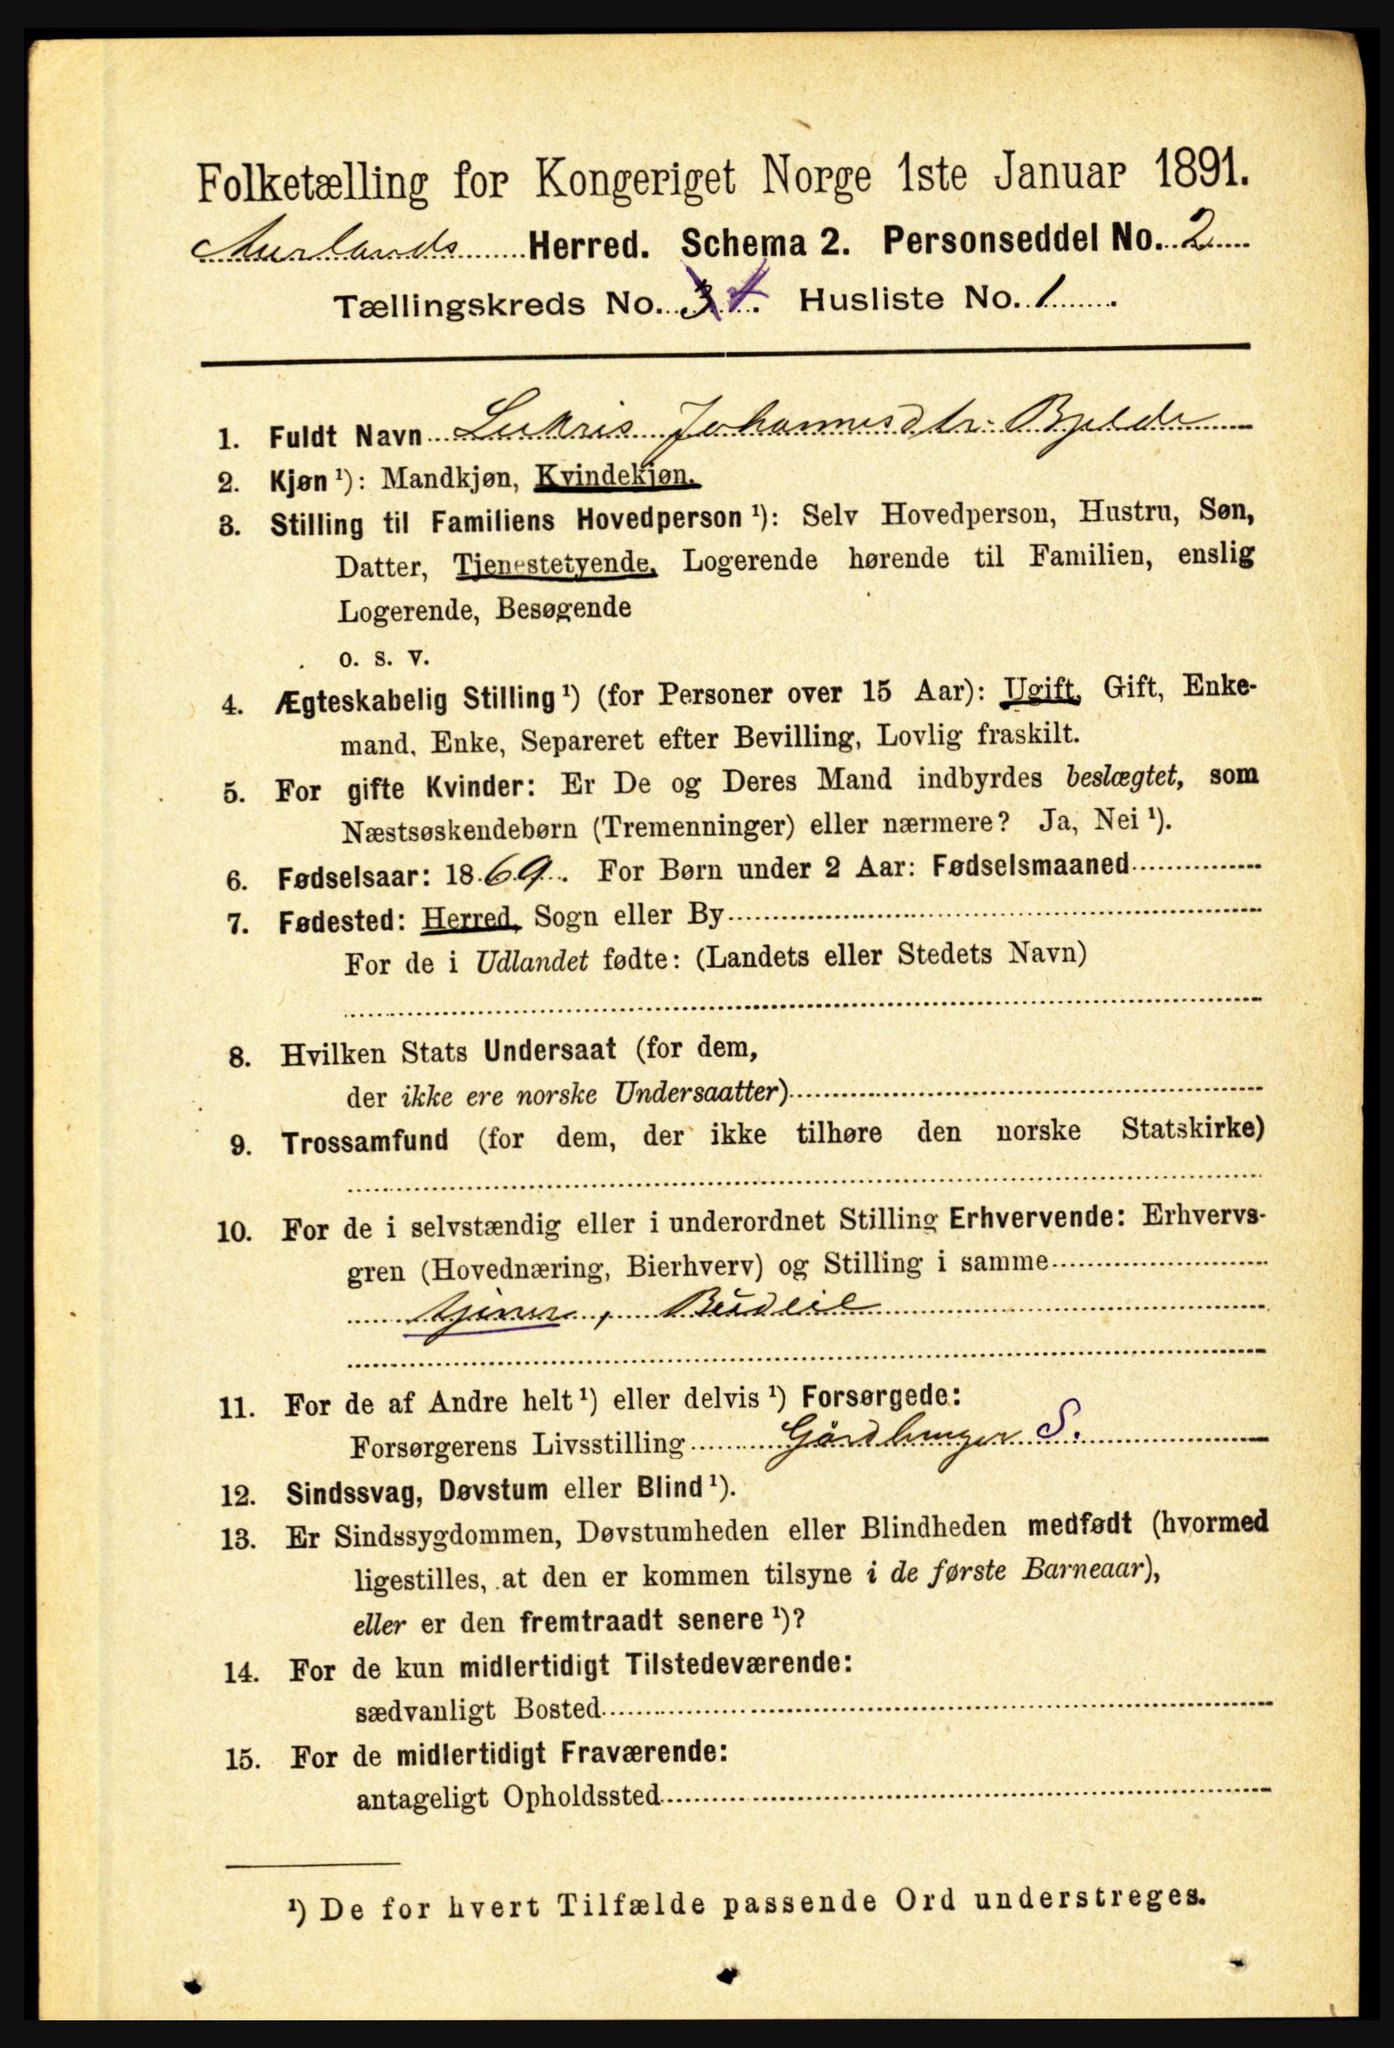 Folketælling for Kongeriget Norge 1ste Januar 1891.
Aurlands Herred. Schema 2. Personseddel No. 2
Tællingskreds No. 3 4. Husliste No. 1
1. Fuldt Navn Lukris Johannesdtr. Bjelde
2. Kjøn ¹): Mandkjøn, Kvindekjøn.
3. Stilling til Familiens Hovedperson ¹): Selv Hovedperson, Hustru, Søn,
Datter, Tjenestetyende, Logerende hørende til Familien, enslig
Logerende, Besøgende
o. s. v.
4. Ægteskabelig Stilling ¹) (for Personer over 15 Aar): Ugift, Gift, Enke-
mand, Enke, Separeret efter Bevilling, Lovlig fraskilt.
5. For gifte Kvinder: Er De og Deres Mand indbyrdes beslægtet, som
Næstsøskendebørn (Tremenninger) eller nærmere? Ja, Nei ¹).
6. Fødselsaar: 1869. For Børn under 2 Aar: Fødselsmaaned
7. Fødested: Herred, Sogn eller By
For de i Udlandet fødte: (Landets eller Stedets Navn)
8. Hvilken Stats Undersaat (for dem,
der ikke ere norske Undersaatter)
9. Trossamfund (for dem, der ikke tilhøre den norske Statskirke)
10. For de i selvstændig eller i underordnet Stilling Erhvervende: Erhvervs-
gren (Hovednæring, Bierhverv) og Stilling i samme
tjener, Budeie
11. For de af Andre helt ¹) eller delvis ¹) Forsørgede:
Forsørgerens Livsstilling Gårdbruger S.
12. Sindssvag, Døvstum eller Blind ¹).
13. Er Sindssygdommen, Døvstumheden eller Blindheden medfødt (hvormed
ligestilles, at den er kommen tilsyne i de første Barneaar),
eller er den fremtraadt senere ¹)?
14. For de kun midlertidigt Tilstedeværende:
sædvanligt Bosted
15. For de midlertidigt Fraværende:
antageligt Opholdssted
¹) De for hvert Tilfælde passende Ord understreges.